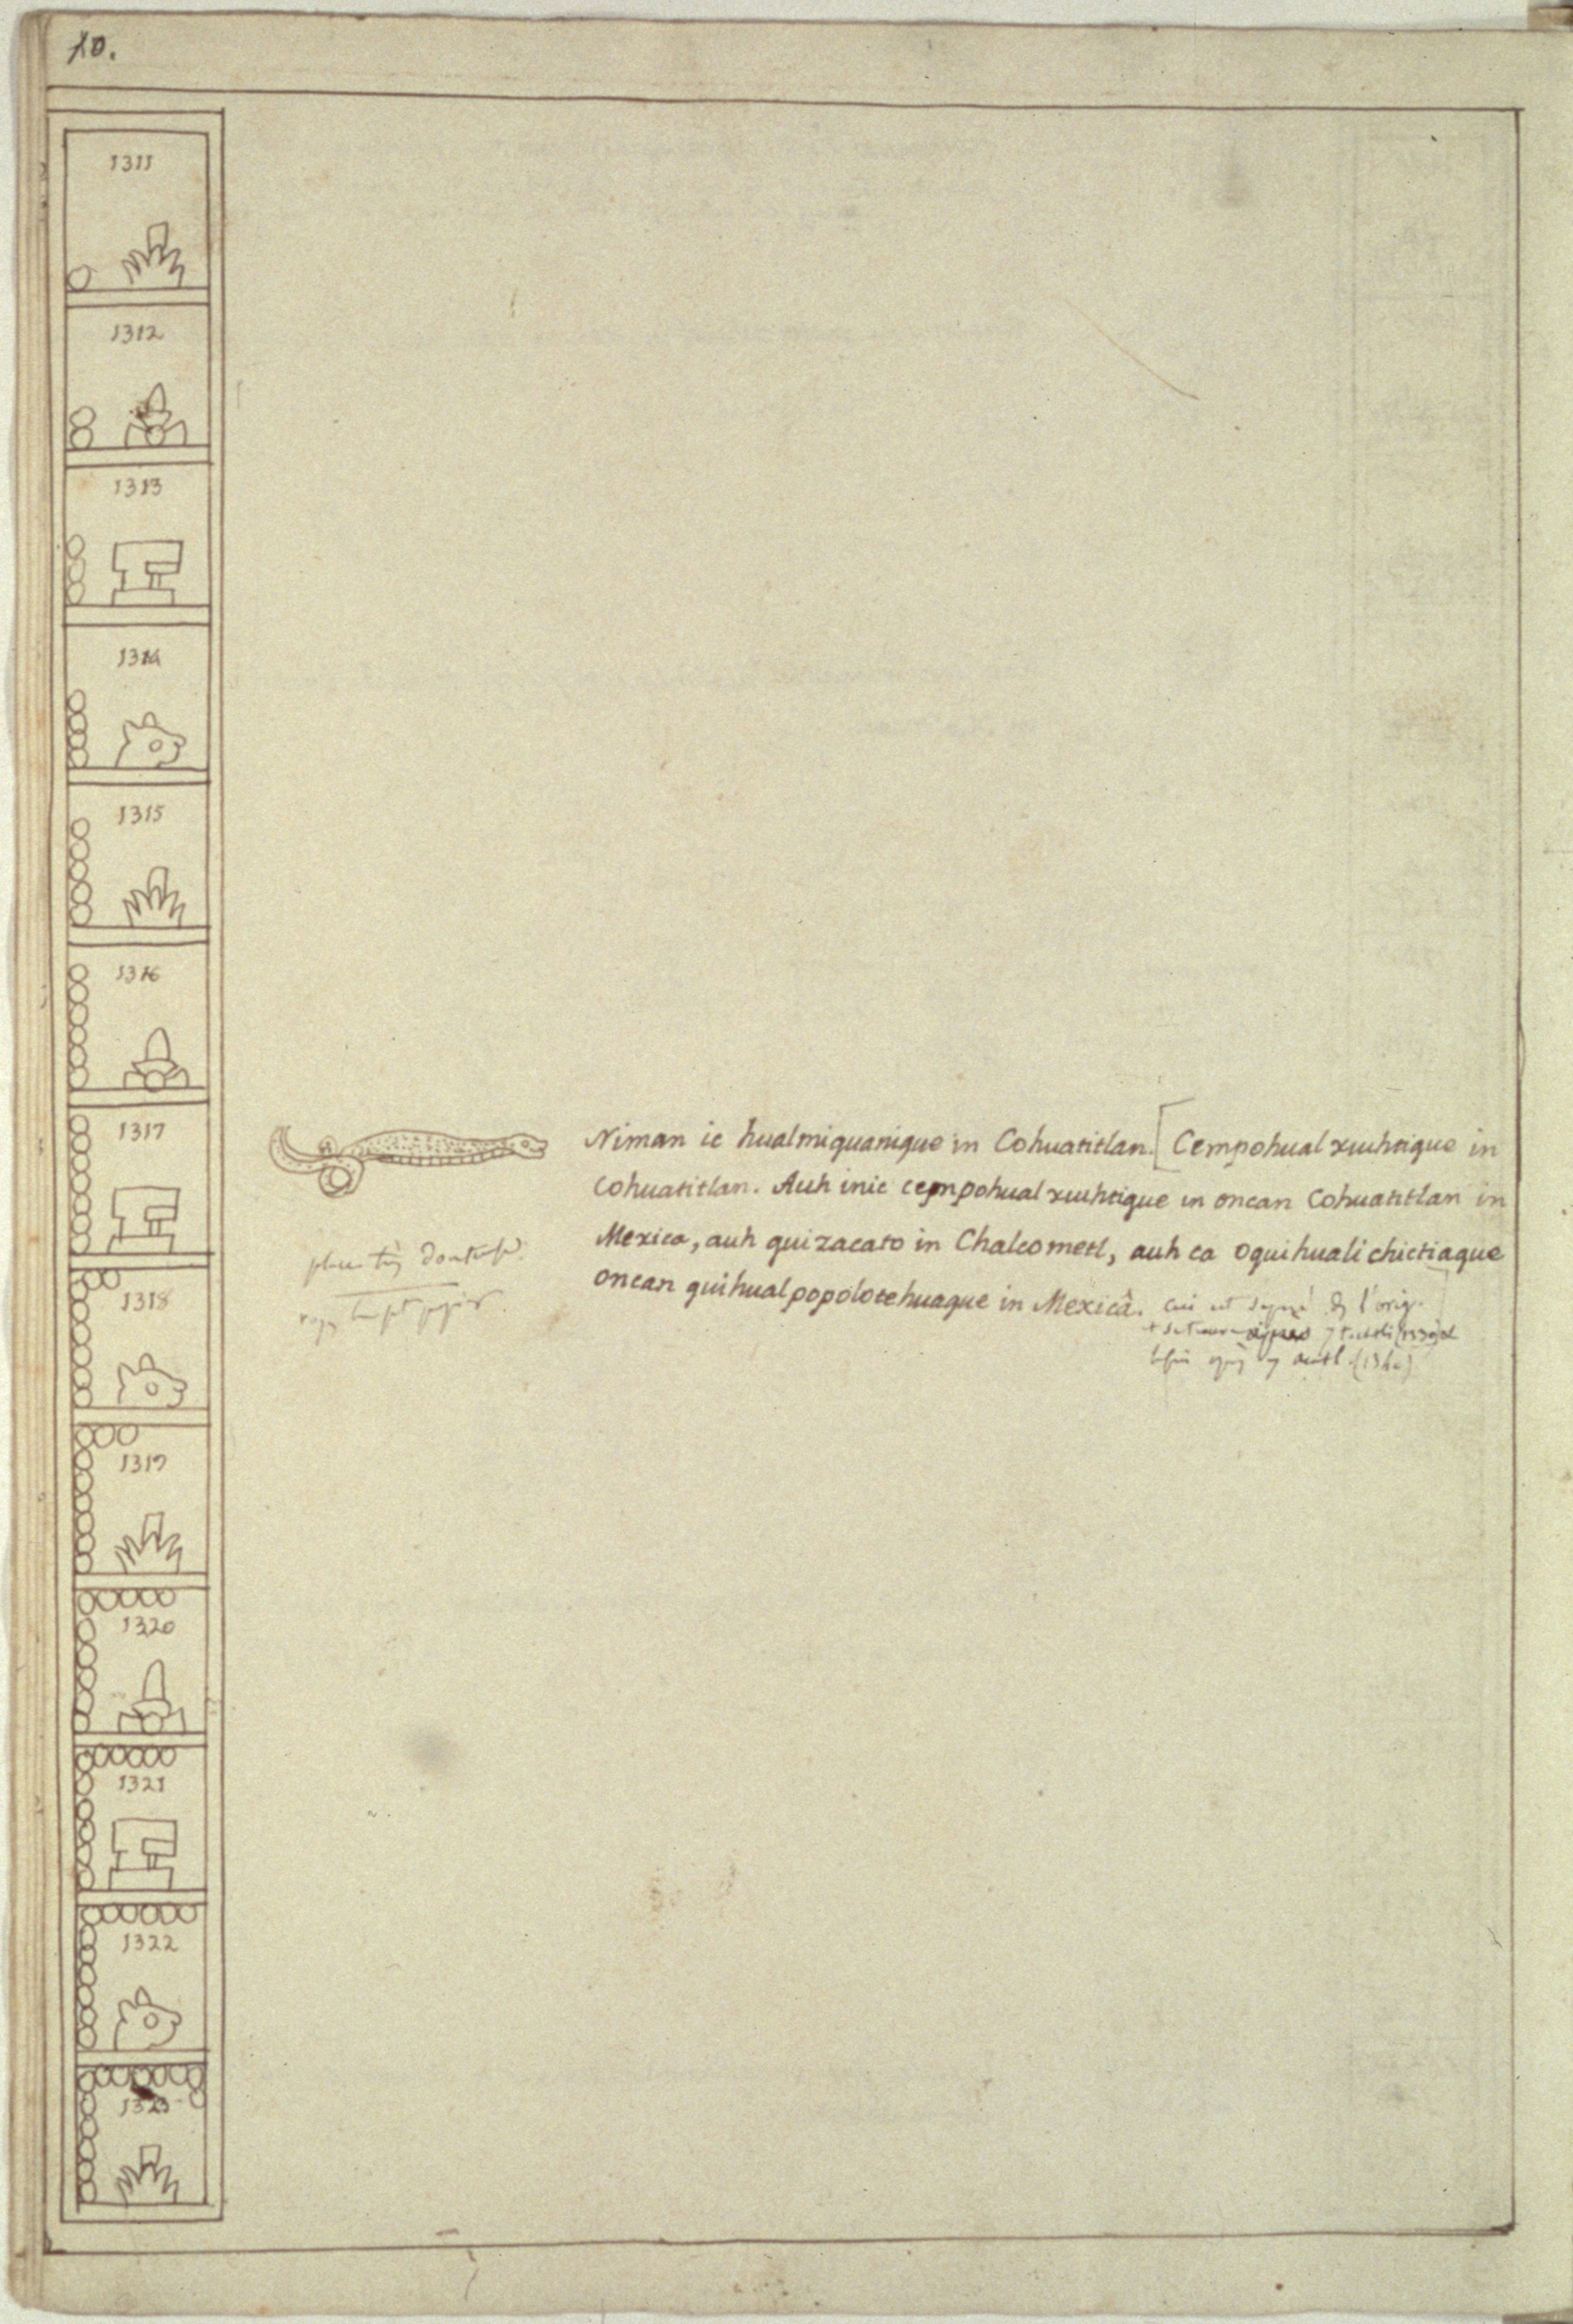 10.
1311
1312
1313
1314
1315
1316
1317
1318
1319
1320
1321
1322
1323
Niman ic hualmiquanique in Cohuatitlan. [Cempohual xiuhtique in
Cohuatitlan. Auh inic cempohual xiuhtique in oncan Cohuatitlan in
Mexica, auh quizacato in Chalcometl, auh ca oquihuali chictiaque
oncan quihualpopolotehuaque in Mexicâ.
l'orig.